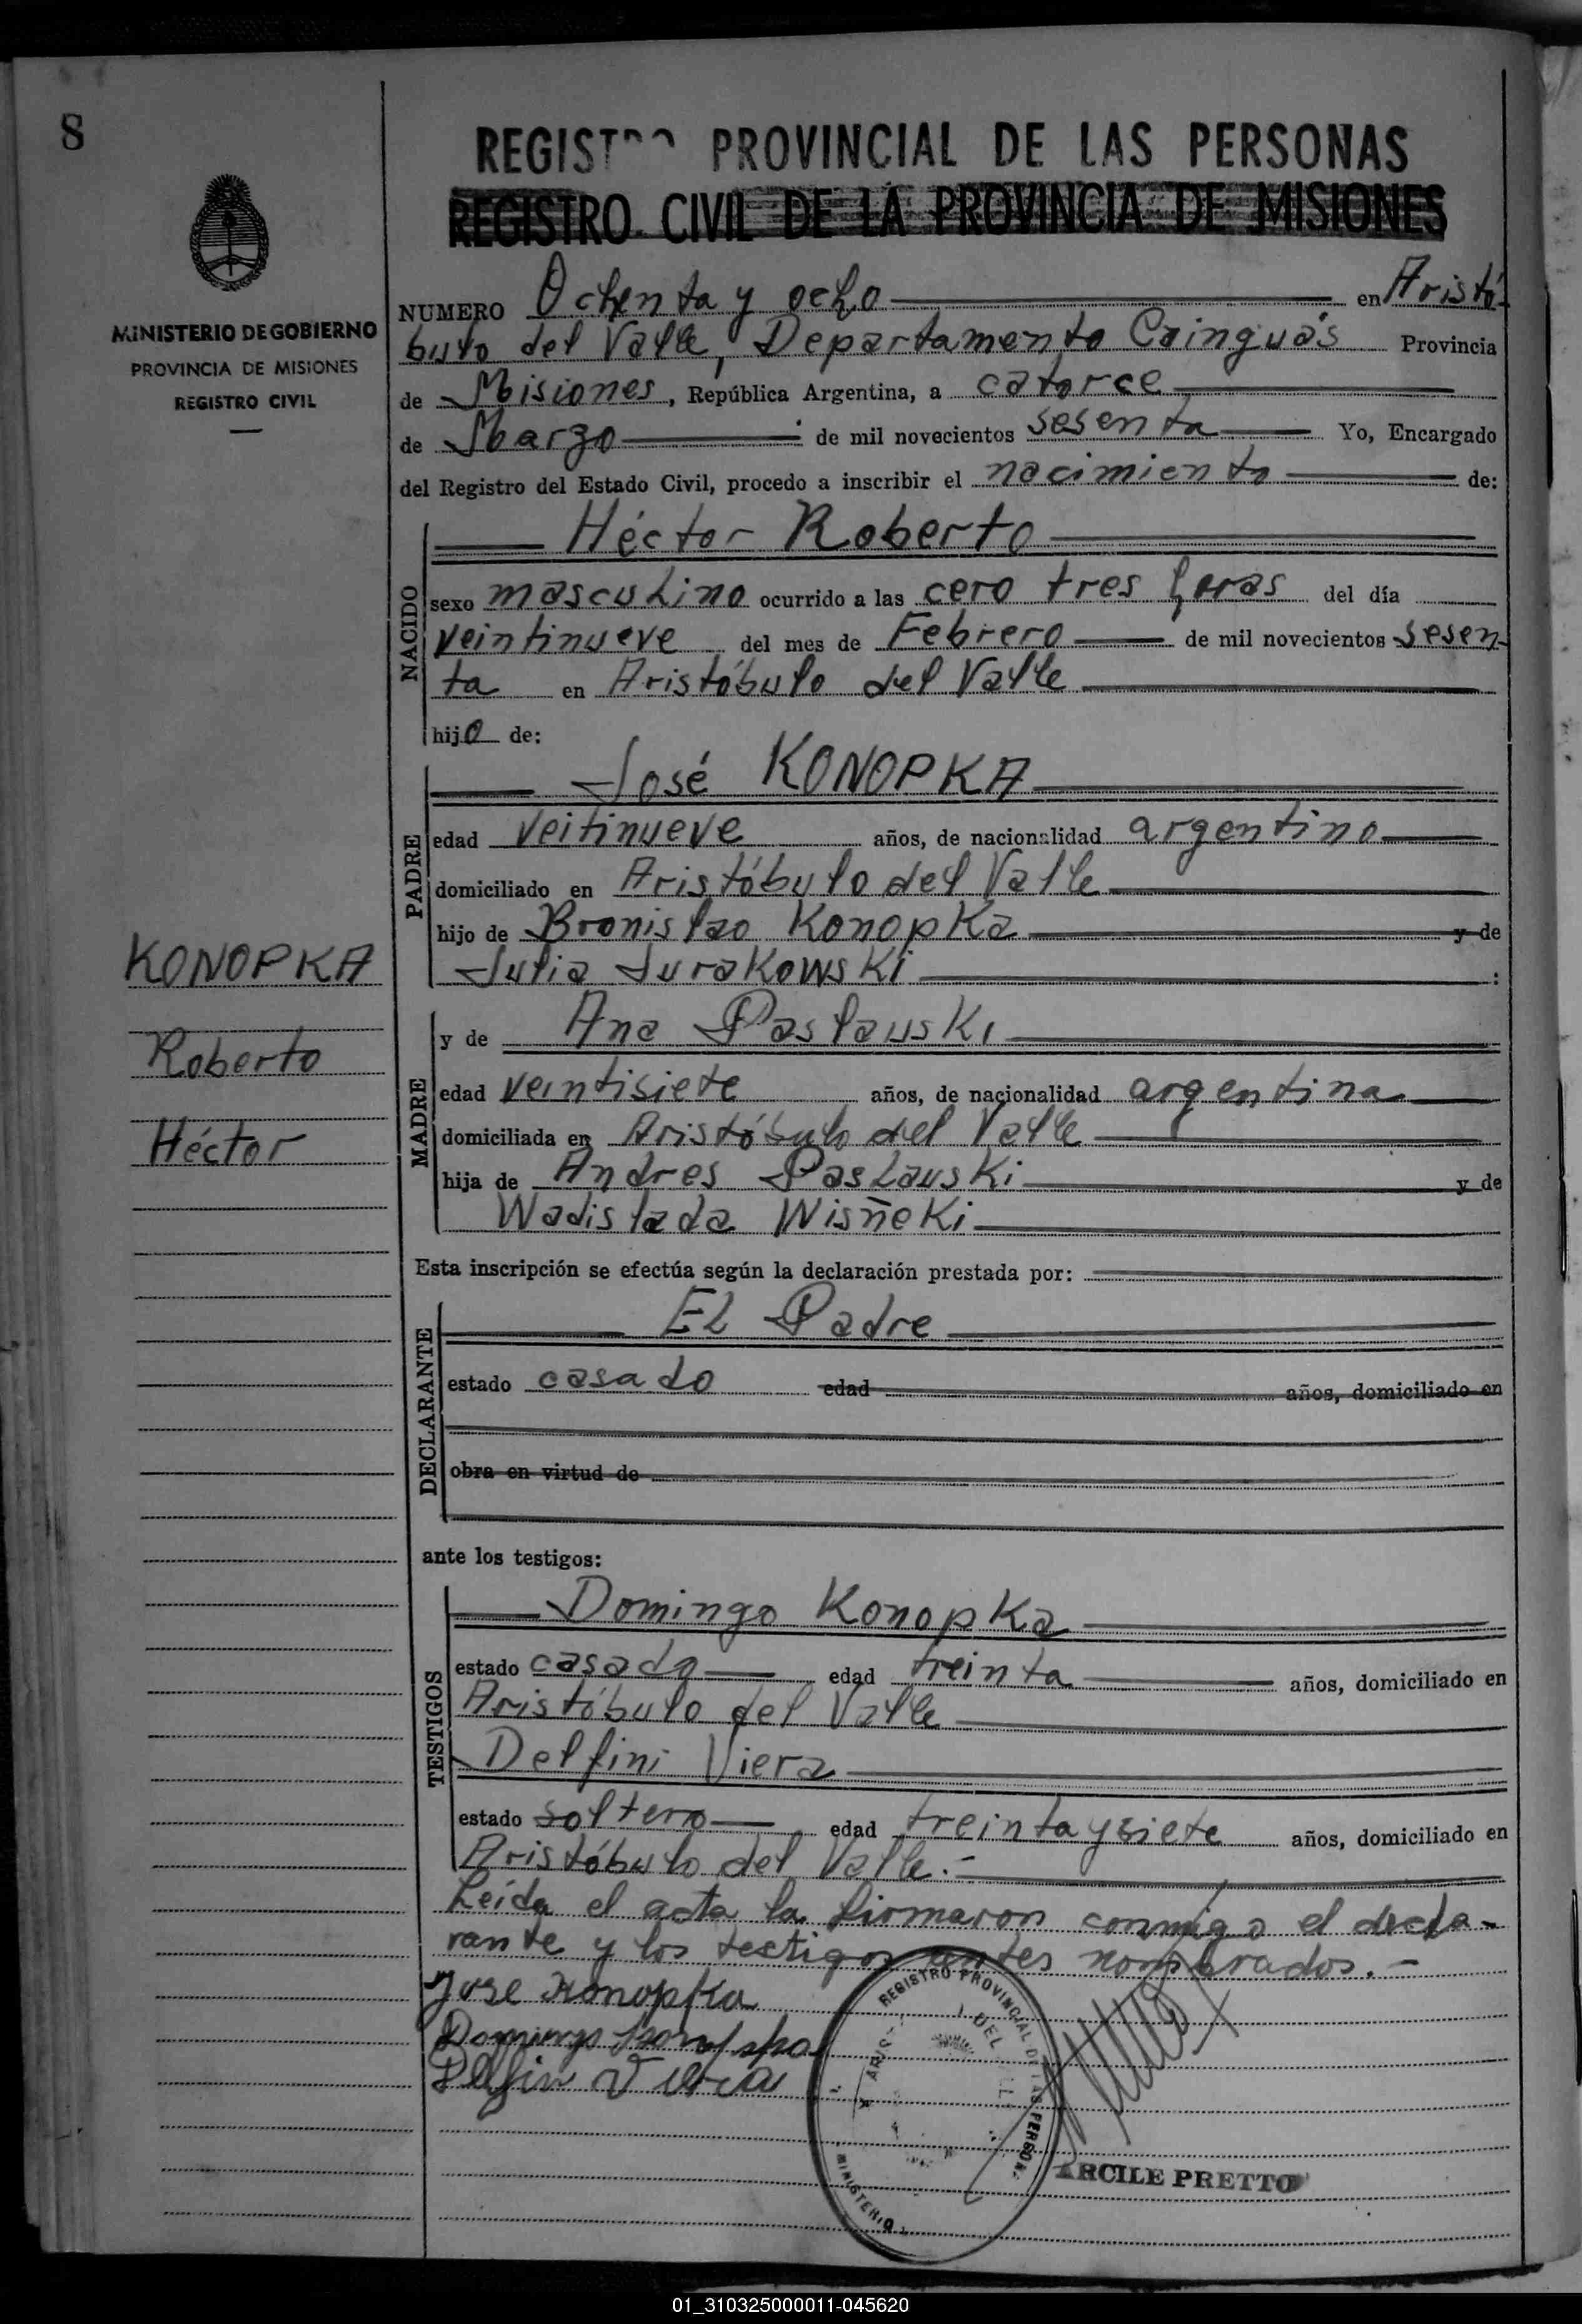 8
REGISTRO PROVINCIAL DE LAS PERSONAS
REGISTRO CIVIL DE LA PROVINCIA DE MISIONES
MINISTERIO DE GOBIERNO
PROVINCIA DE MISIONES
REGISTRO CIVIL
NUMERO Ochenta y ocho en Aristó-
bulo del Valle, Departamento Cainguás Provincia
de Misiones, República Argentina, a catorce
de Marzo de mil novecientos sesenta Yo, Encargado
del Registro del Estado Civil, procedo a inscribir el nacimiento de:
NACIDO
Héctor Roberto
sexo masculino ocurrido a las cero tres horas del día
veintinueve del mes de Febrero de mil novecientos sesen-
ta en Aristóbulo del Valle
hijo de:
PADRE
José KONOPKA
edad veitinueve años, de nacionalidad argentino
domiciliado en Aristóbulo del Valle
hijo de Bronislao Konopka y de
Julia Jurakowski :
KONOPKA
Roberto
Héctor
MADRE
y de Ana Paslauski
edad veintisiete años, de nacionalidad argentina
domiciliada en Aristóbulo del Valle
hija de Andres Paslauski y de
Wadislada Wisñeki
Esta inscripción se efectúa según la declaración prestada por:
DECLARANTE
El Padre
estado casado edad años, domiciliado en
obra en virtud de
ante los testigos:
TESTIGOS
Domingo Konopka
estado casado edad treinta años, domiciliado en
Aristóbulo del Valle
Delfini Viera
estado soltero edad treinta y siete años, domiciliado en
Aristóbulo del Valle.-
Leída el acta la firmaron conmigo el decla-
rante y los testigos antes nombrados.-
Jose Konopka
Domingo Konopka
Delfin Viera
REGISTRO PROVINCIAL DE LAS PERSON
DEL
MINISTERIO
ARCILE PRETTO
01_310325000011-045620